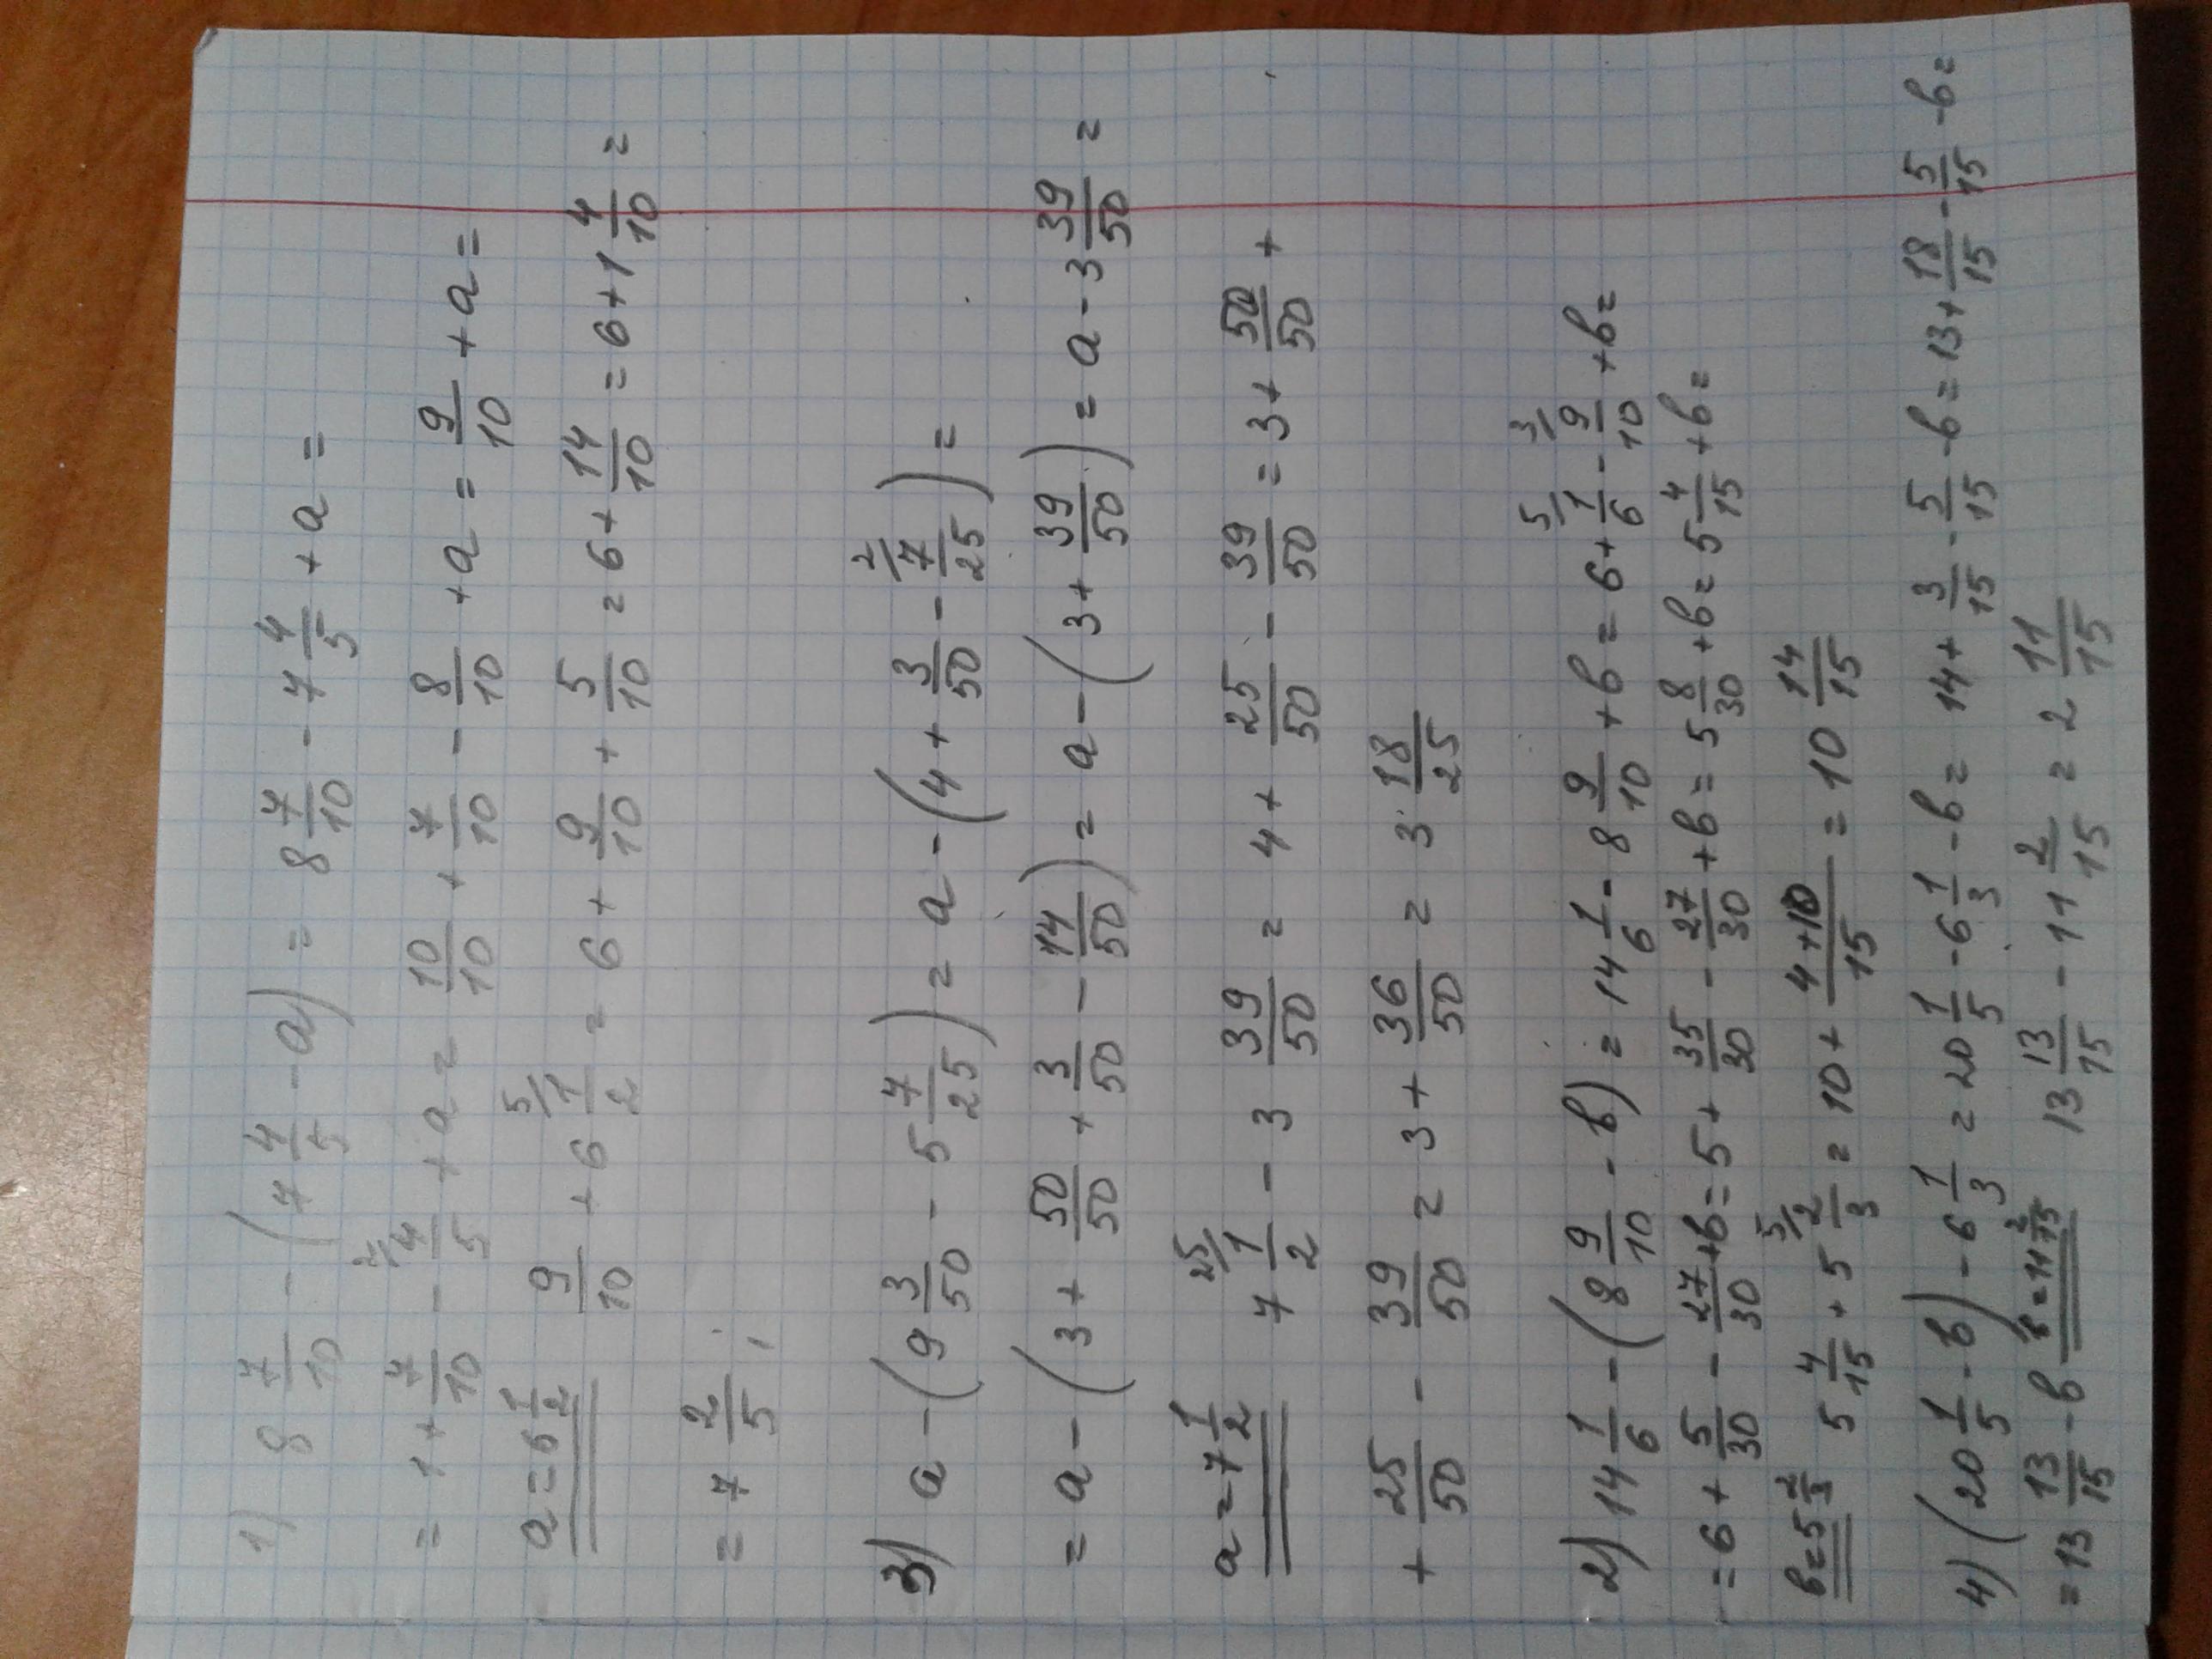 1) 8 7/10 - (7 4/5 - a) = 8 7/10 - 7 4/5 + a =
= 1 + 7/10 - 4/5 ²/ + a = 10/10 + 7/10 - 8/10 + a = 9/10 + a =
a = 6 1/2 9/10 + 6 1/2 ⁵/ = 6 + 9/10 + 5/10 = 6 + 14/10 = 6 + 1 4/10 =
= 7 2/5 ;
3) a - (9 3/50 - 5 7/25) = a - (4 + 3/50 - 7/25 ²/) =
= a - (3 + 50/50 + 3/50 - 14/50) = a - (3 + 39/50) = a - 3 39/50 =
a = 7 1/2 7 1/2 ²⁵/ - 3 39/50 = 4 + 25/50 - 39/50 = 3 + 50/50 +
+ 25/50 - 39/50 = 3 + 36/50 = 3 18/25
2) 14 1/6 - (8 9/10 - b) = 14 1/6 - 8 9/10 + b = 6 + 1/6 ⁵/ - 9/10 ³/ + b =
= 6 + 5/30 - 27/30 + b = 5 + 35/30 - 27/30 + b = 5 8/30 + b = 5 4/15 + b =
b = 5 2/3 5 4/15 + 5 2/3 ⁵/ = 10 + 4+10/15 = 10 14/15
4) (20 1/5 - b) - 6 1/3 = 20 1/5 - 6 1/3 - b = 14 + 3/15 - 5/15 - b = 13 + 18/15 - 5/15 - b =
= 13 13/15 - b b = 11 2/15 13 13/15 - 11 2/15 = 2 11/15